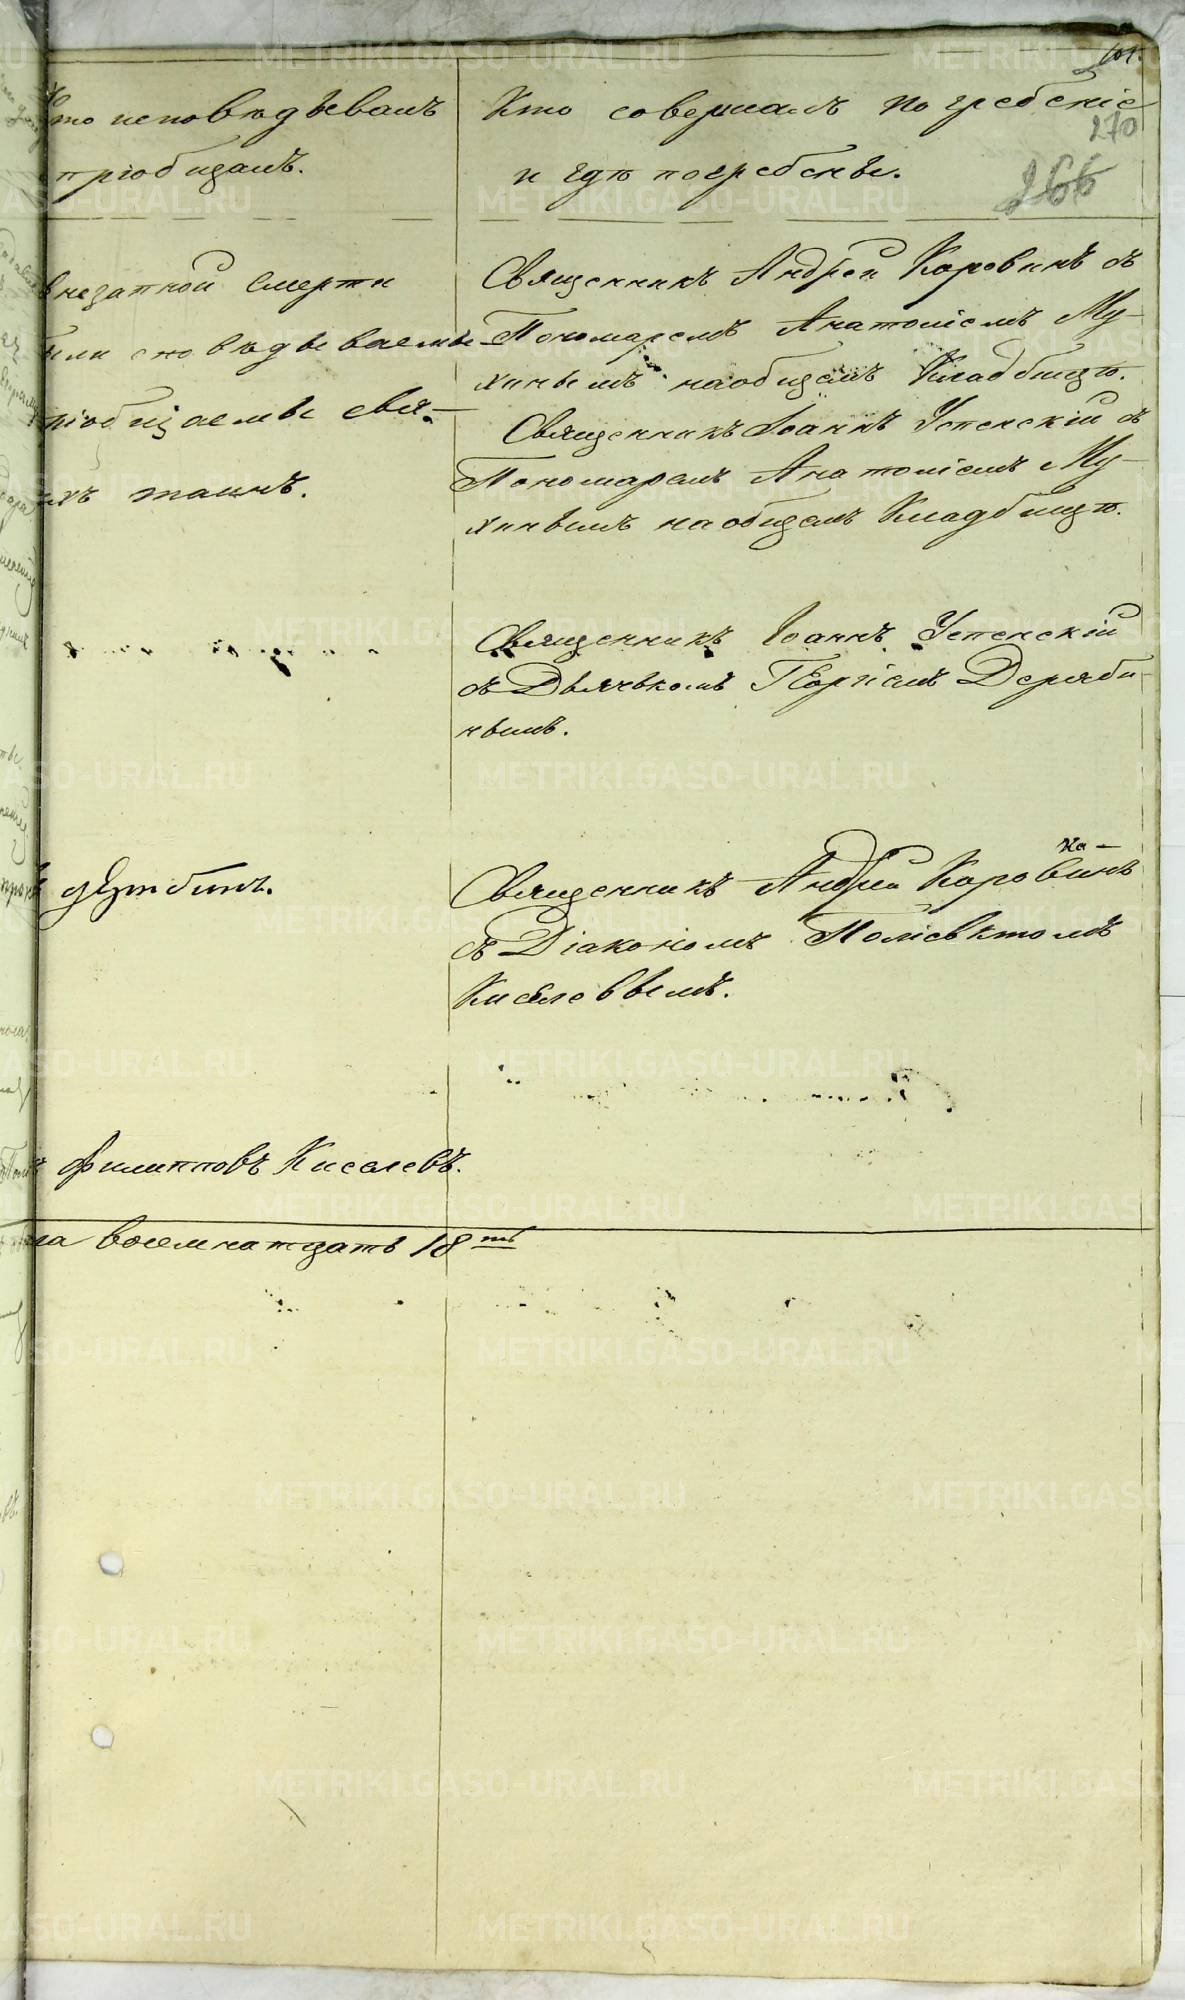 101.
Кто исповѣдывалъ
пріобщалъ.
Кто совершалъ погребеніе
270
266
и гдѣ погребены.
внезапной смерти
были исповѣдываемы
пріобщаемы свя-
тыхъ таинъ.
Священникъ Андрей Коровинъ съ
Пономаремъ Анатоліемъ Му-
хинымъ наобщемъ Кладбищѣ.
Священникъ Іоаннъ Успенскій съ
Пономаремъ Анатоліемъ Му-
хинымъ на общемъ Кладбищѣ.
Священникъ Іоаннъ Успенскій
съ Дьячькомъ Георгіемъ Деряби-
нымъ.
Дерябинъ.
на-
Священникъ Андрей Коровинъ
съ Діакономъ Поліевктомъ
Киселевымъ.
Филипповъ Киселевъ.
восемнатцать 18 ть
METRIKI.GASO-URAL.RU